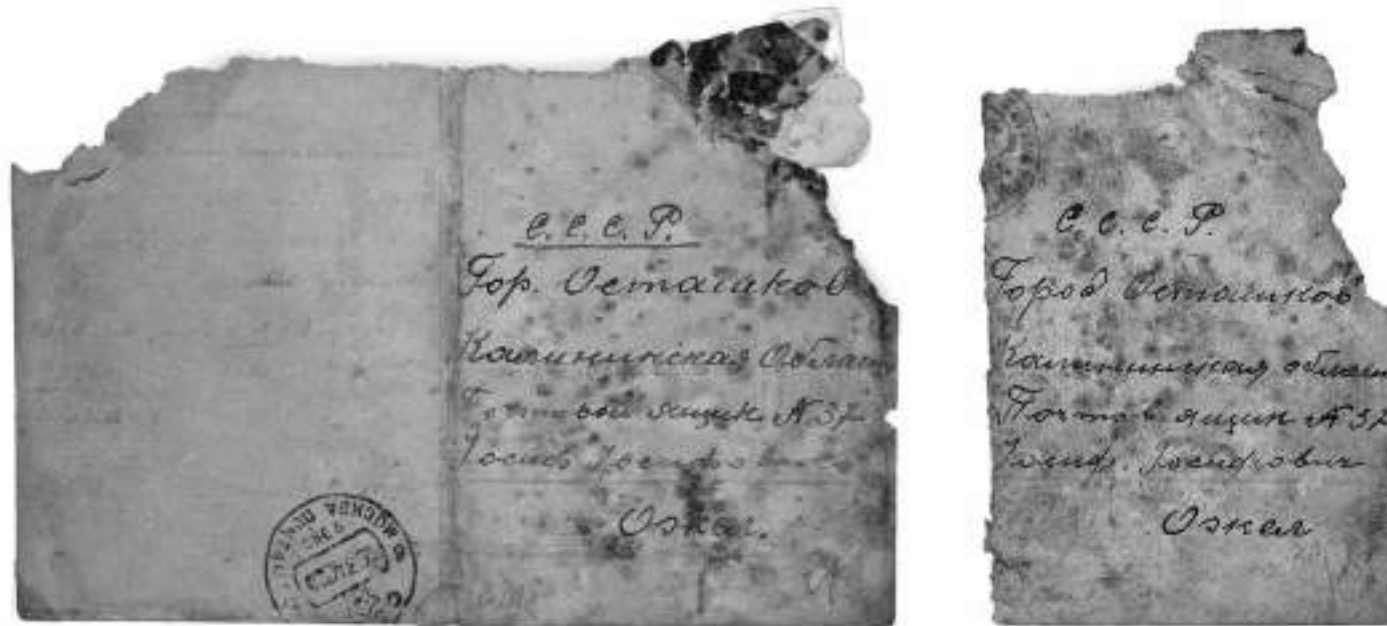 С. С. С. Р.
Гор. Осташков
Калининская Област
Почтовый ящик № 37
Иосиф Иосифович
Озкал.
МОСКВА ПОЧТА
С. С. С. Р.
Город Осташков
Калининская област
Почтов ящик № 37
Иосиф. Иосифович
Озкал